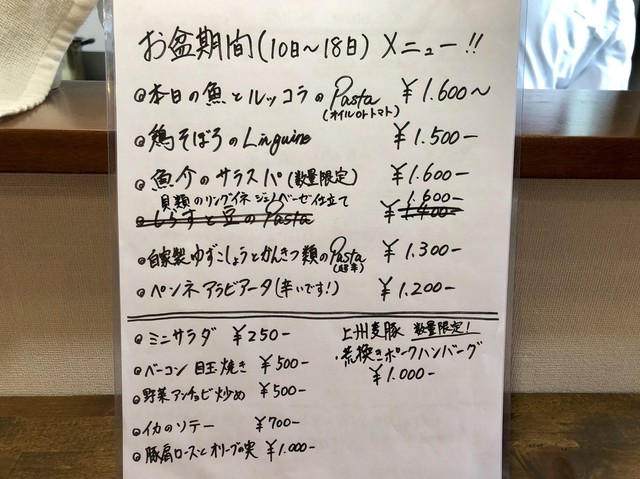 お盆期間(10日〜18日) メニュー!!
◎本日の魚とルッコラのPasta ¥1.600〜
(オイルorトマト)
◎鶏そぼろのLinguine ¥1.500-
◎魚介のサラスパ(数量限定) ¥1.600-
貝類のリングイネ ジェノベーゼ仕立て 1.600-
◎しらすと豆のPasta ¥1.400-
◎自家製ゆずこしょうとかんきつ類のPasta ¥1.300-
◎ペンネアラビアータ(辛いです!) ¥1.200-
◎ミニサラダ ¥250-
◎ベーコン目玉焼き ¥500-
◎野菜アンチョビ炒め ¥500-
◎イカのソテー ¥700-
◎豚肩ロースとオリーブの実 ¥1.000-
上州麦豚 数量限定!
・荒挽きポークハンバーグ
¥1.000-